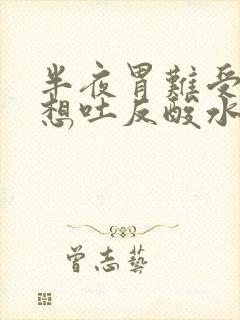 半夜胃難受
想吐反酸水
曾志藝